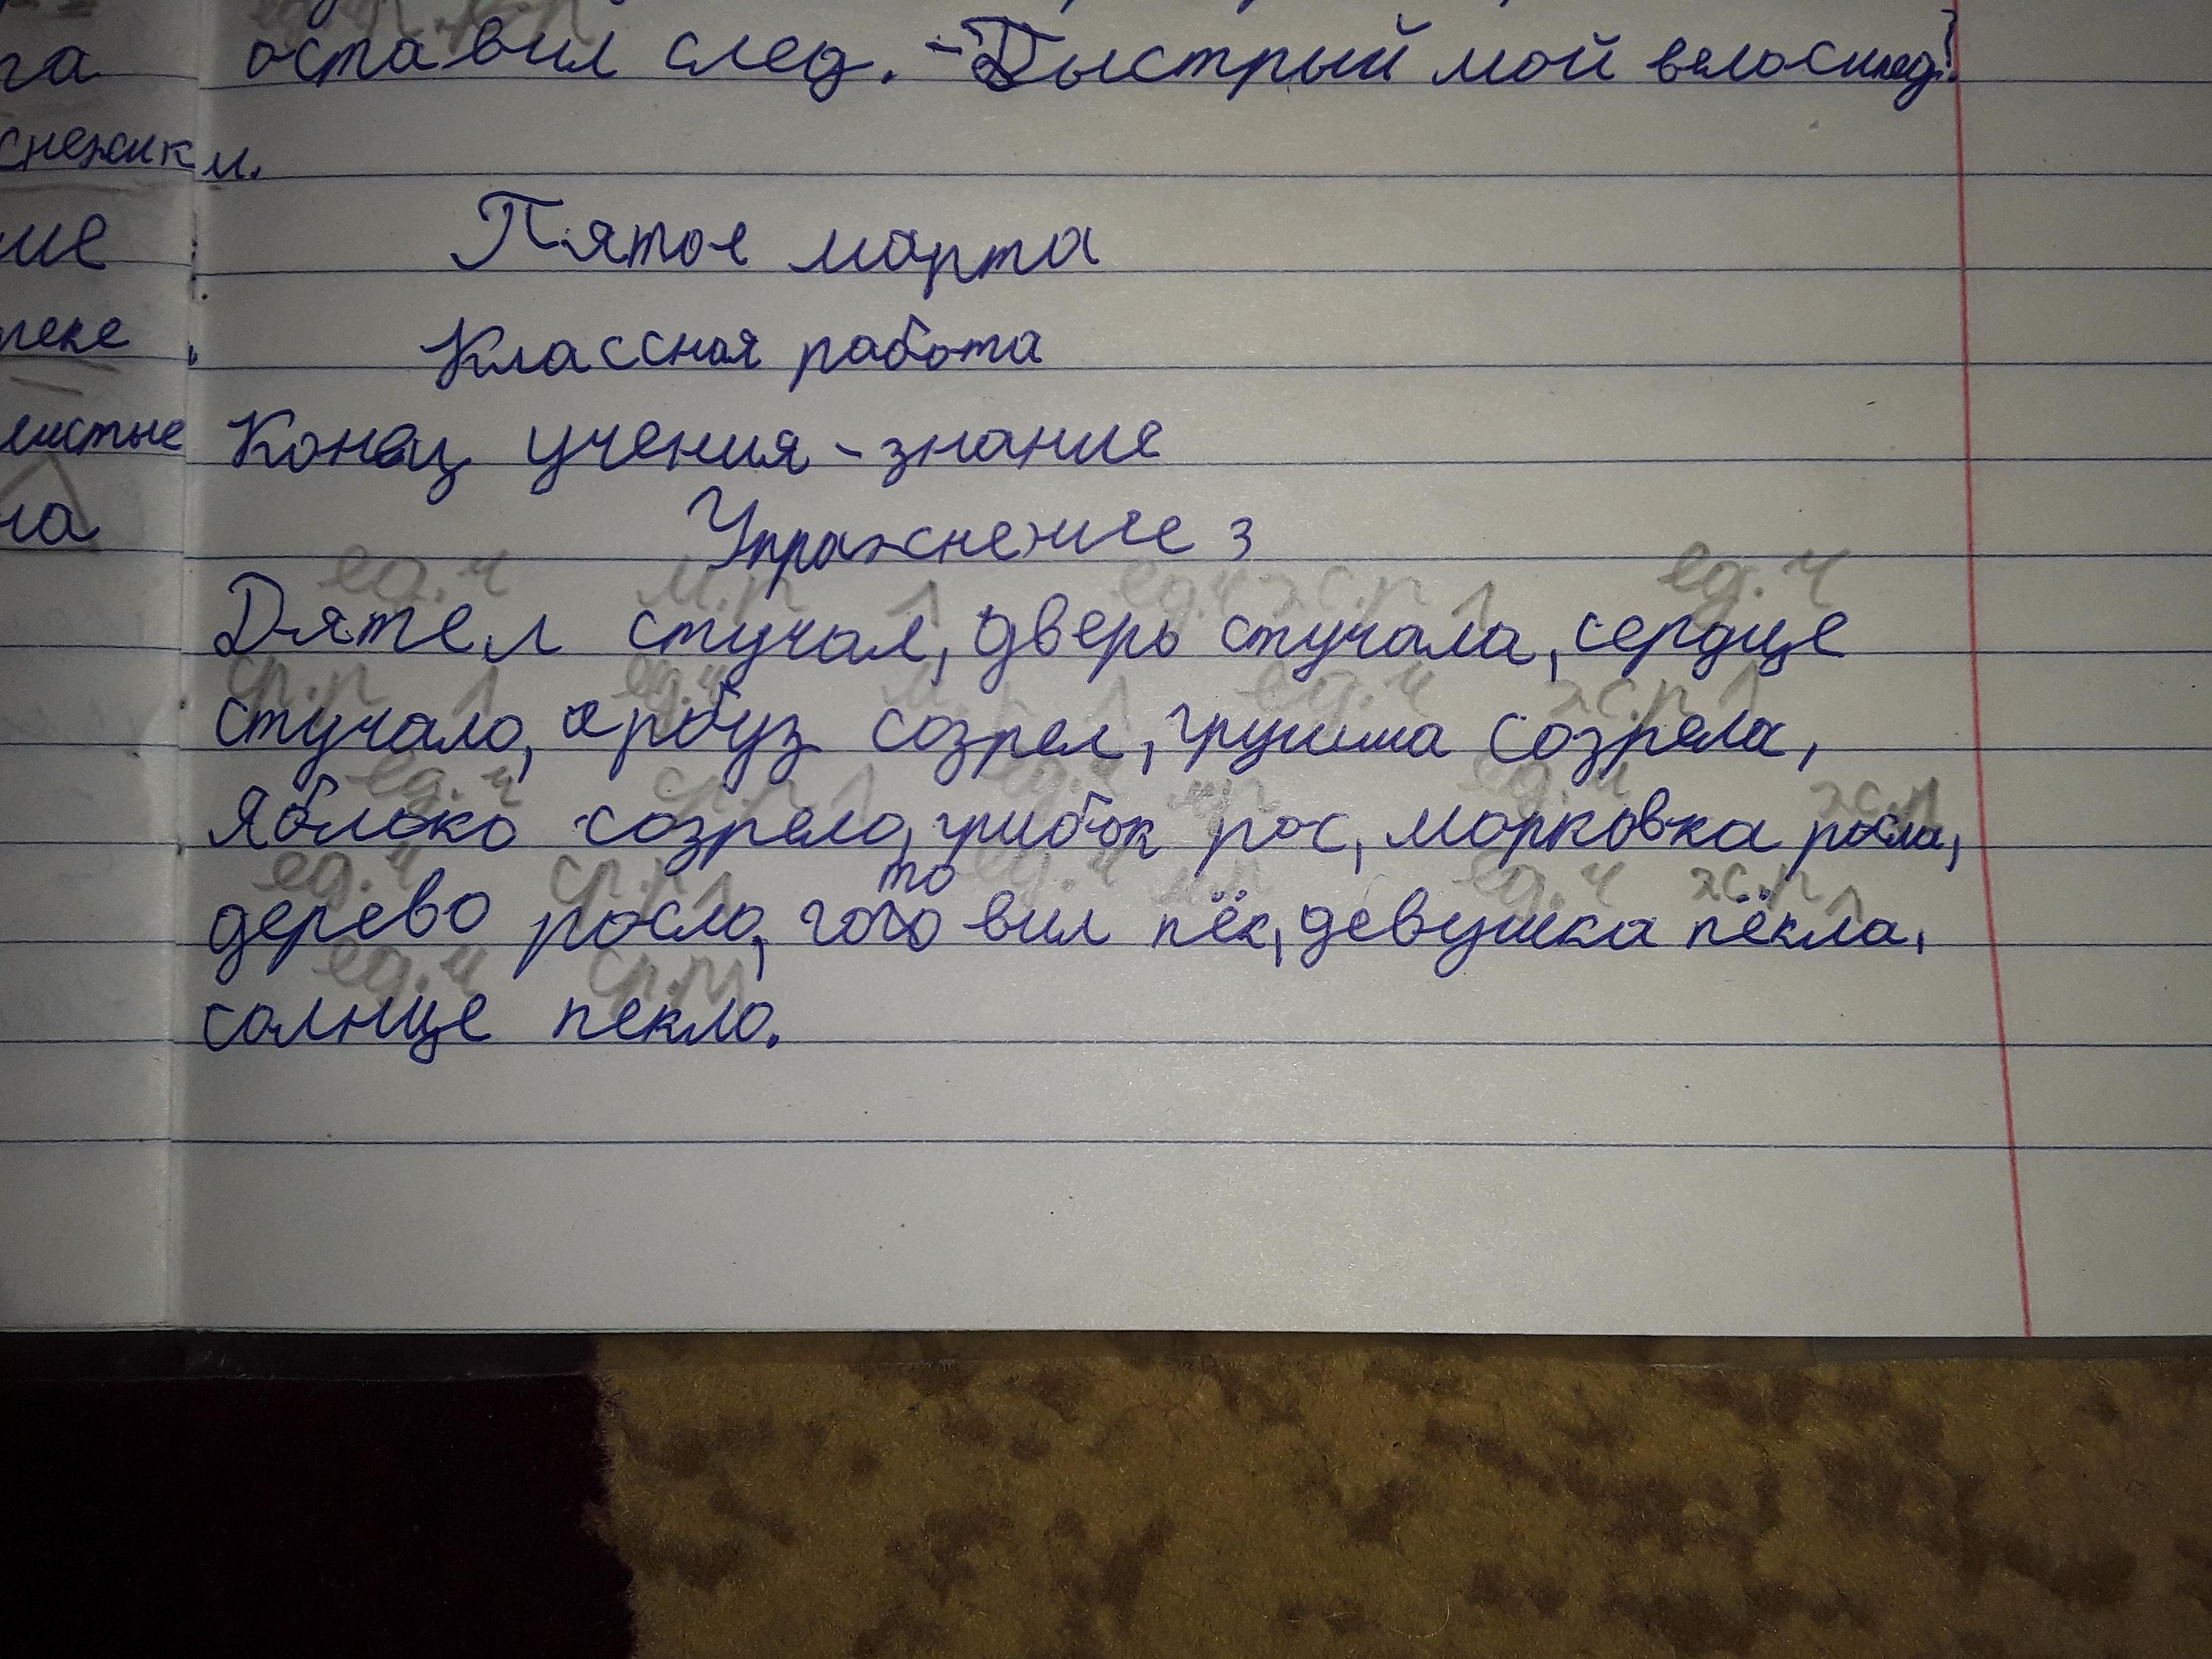 га оставил след. - Быстрый мой велосипед!
снежики.
Пятое марта
Классная работа
Конец учения - знание
Упражнение 3
ед.ч м.р ед.ч ж.р ед.ч
Дятел стучал, дверь стучала, сердце
ср.р ед.ч м.р ед.ч ж.р
стучало, арбуз созрел, груша созрела,
ед.ч ср.р ед.ч м.р ед.ч ж.р
Яблоко созрело, грибок рос, морковка росла,
ед.ч ср.р то ед.ч м.р ед.ч ж.р
дерево росло, гого вил пёк, девушка пёкла,
ед.ч ср.р
солнце пекло.